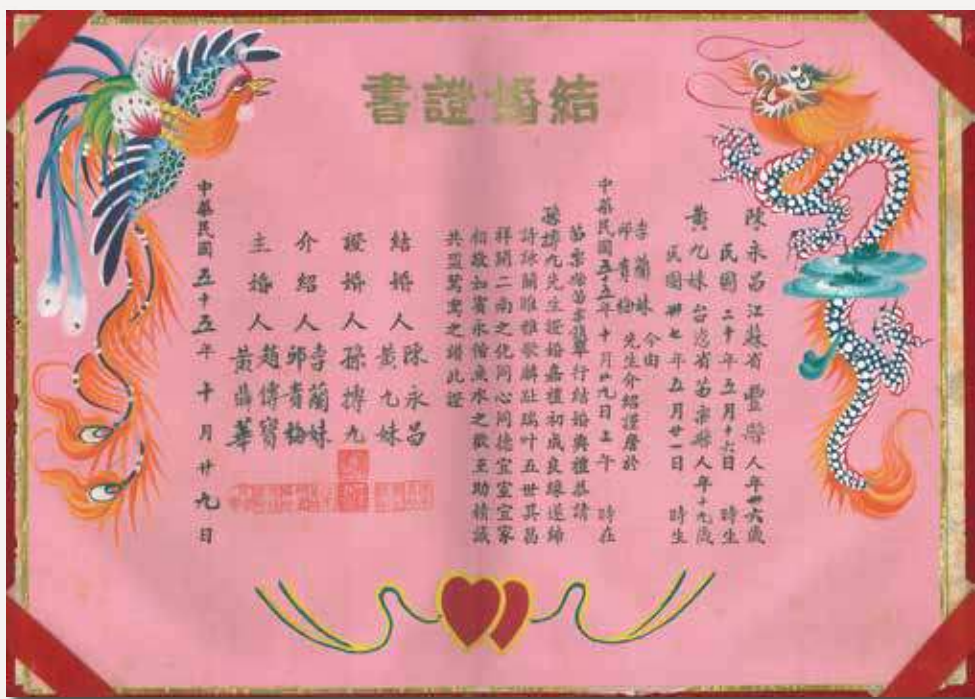 結婚證書
陳永昌 江蘇省豐縣人年卅六歲
民國二十年五月十六日 時生
黃九妹 台湾省苗栗縣人年十九歲
民國卅七年五月廿一日 時生
今由
李蘭妹
邱青梅 先生介紹謹詹於
中華民國五十五年十月廿九日上午 時在
苗栗 舉行結婚典禮恭請
孫搏九先生證婚嘉禮初成良緣遂締
詩詠關雎雅歌麟趾瑞叶五世其昌
祥開二南之化同心同德宜室宜家
相敬如賓永偕魚水之歡互助精誠
共盟鴛鴦之誓此證
結婚人 陳永昌 黃九妹
證婚人 孫搏九
介紹人 李蘭妹 邱青梅
主婚人 趙傳寶 黃鼎華
中華民國五十五年十月廿九日